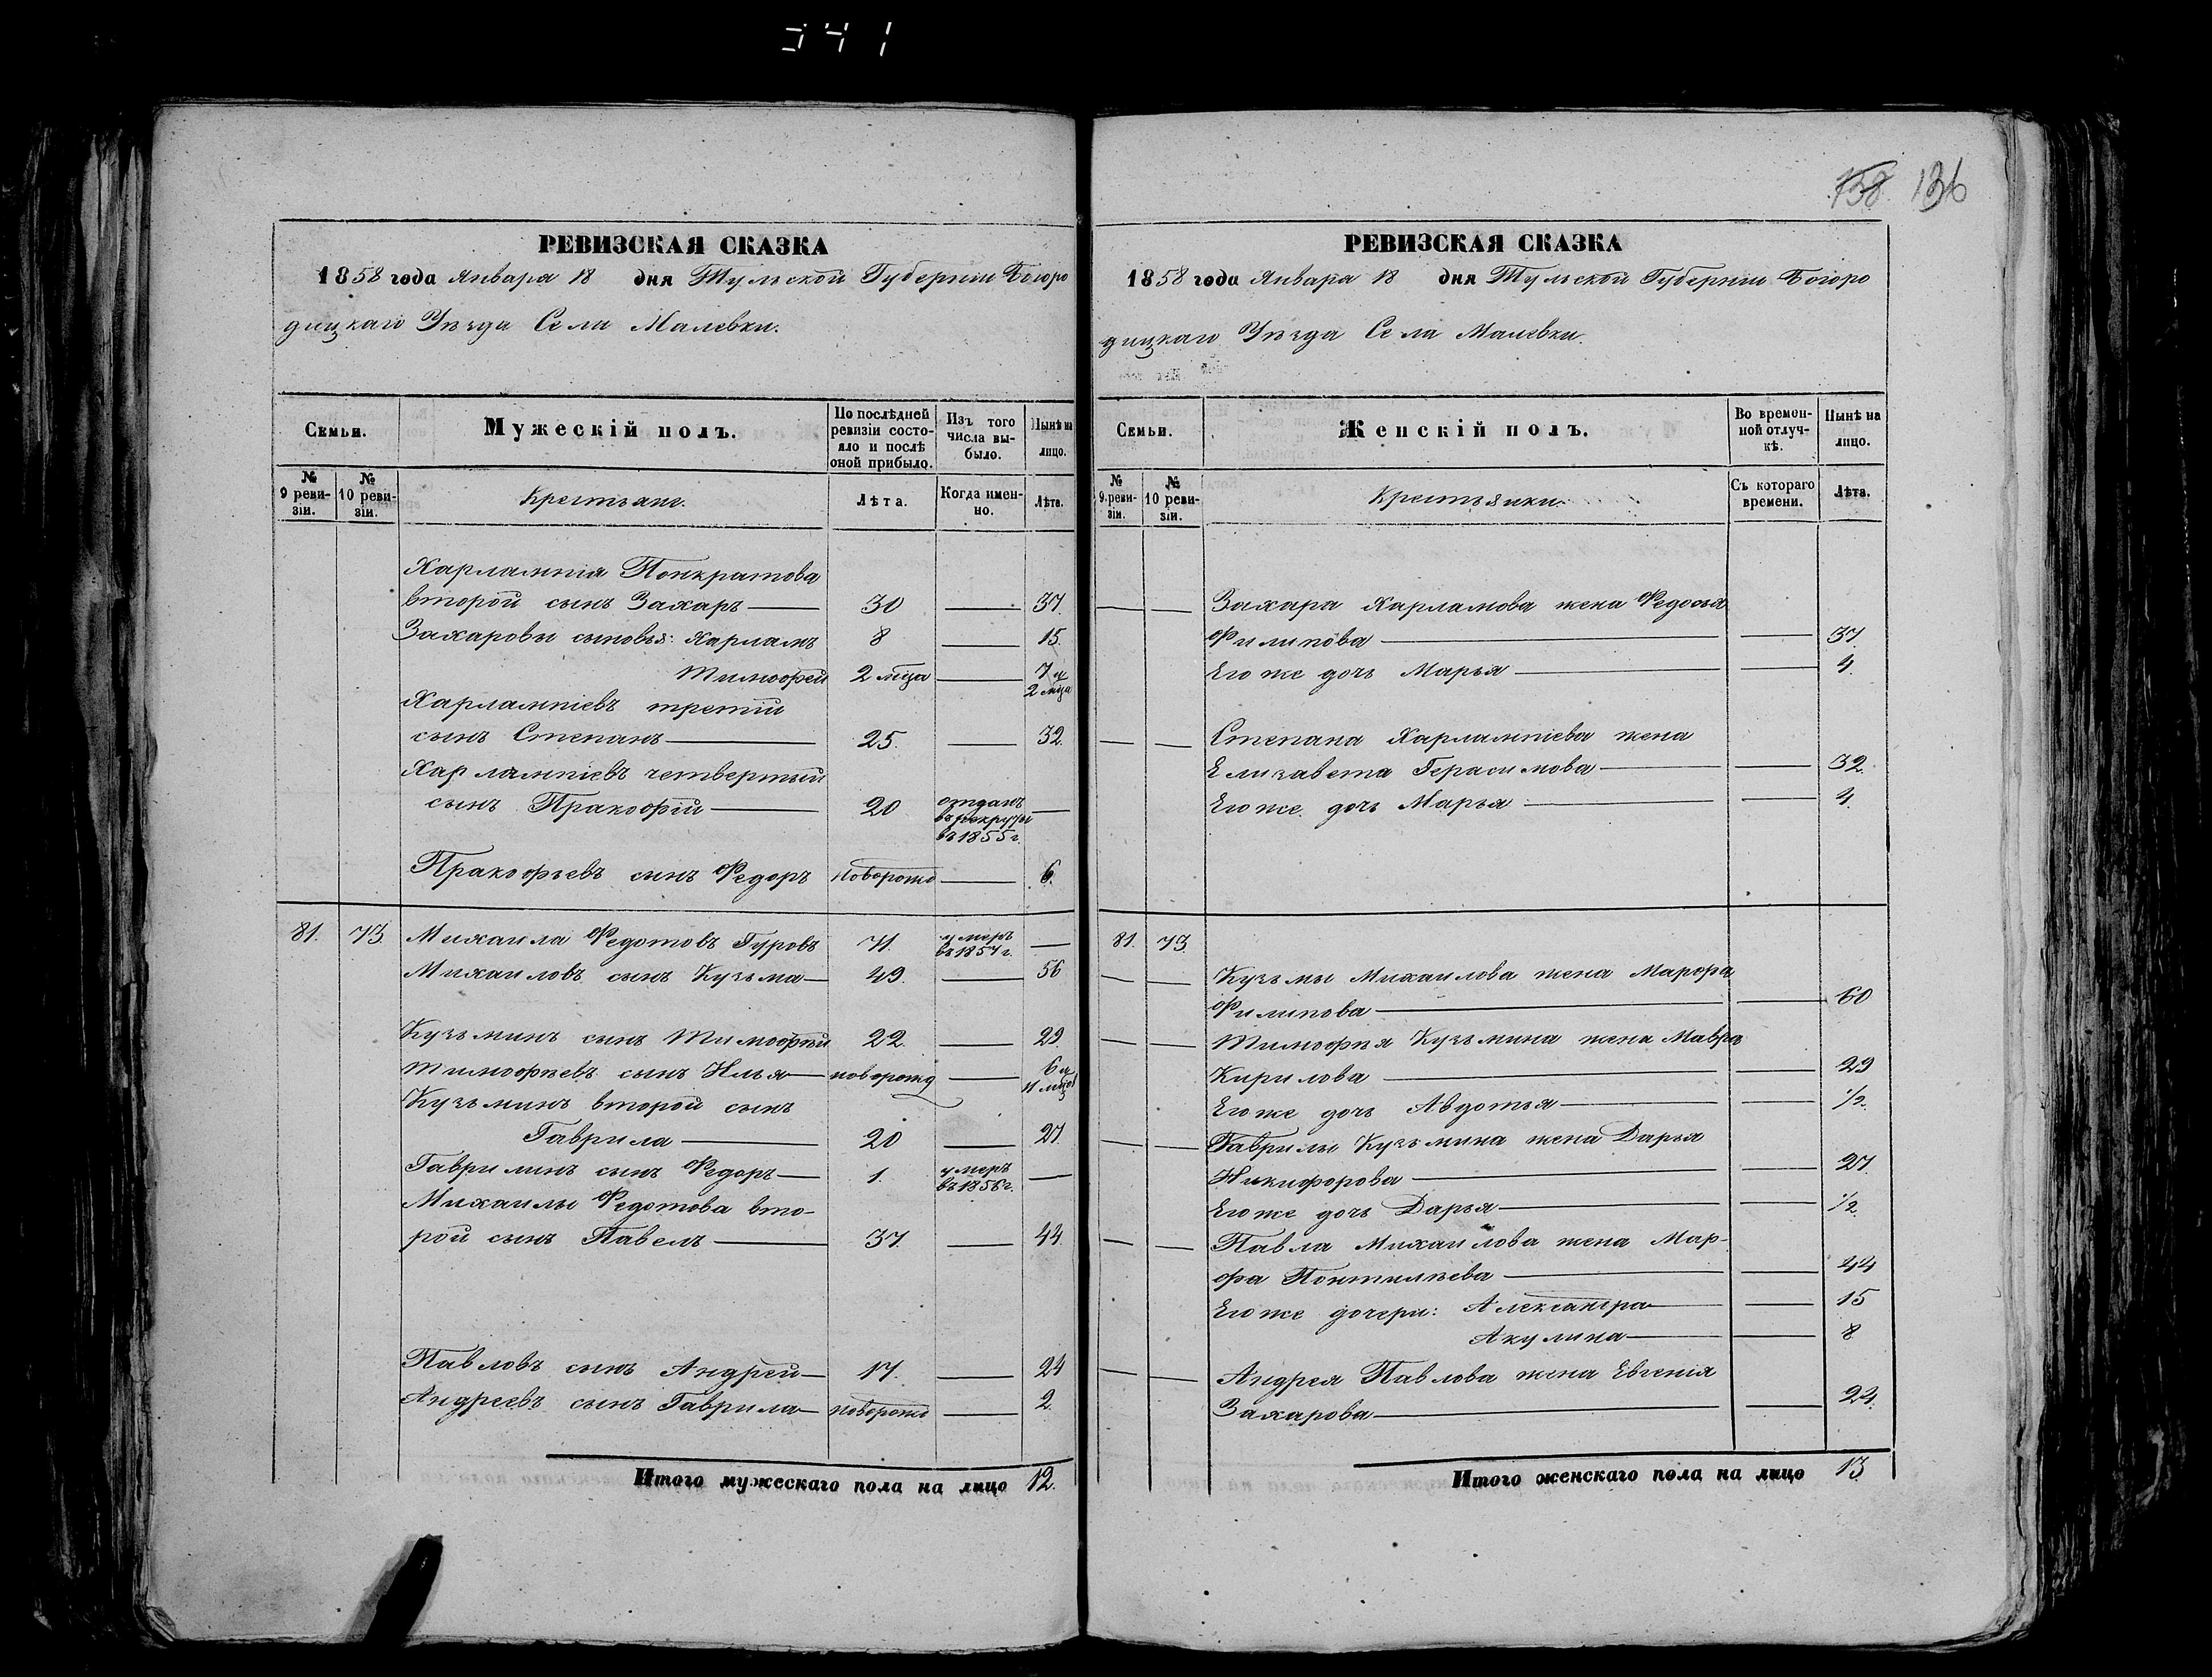 341
158 136
РЕВИЗСКАЯ СКАЗКА
1858 года Января 18 дня Тульской Губернии Богоро
дицкаго Уѣзда Села Малевки.
Семьи.
Мужескій полъ.
По послѣдней ревизіи состояло и послѣ оной прибыло.
Изъ того числа выбыло.
Нынѣ на лицо.
№ 9 ревизіи.
№ 10 ревизіи.
Крестьяне.
Лѣта.
Когда именно.
Лѣта.
Харлампія Понкратова
второй сынъ Захаръ — 30 — 37.
Захаровы сыновья: Харламъ 8 — 15.
Тимофей 2 мѣца — 7 и 2 мѣца
Харлампіевъ третій
сынъ Степанъ — 25. — 32.
Харлампіевъ четвертый
сынъ Пракофій — 20 отданъ въ рекруты въ 1855 г. —
Пракофьевъ сынъ Федоръ поворожд — 6.
81. 73. Михаила Федотовъ Гуровъ 71. умеръ въ 1857 г. —
Михаиловъ сынъ Кузьма — 49. — 56
Кузьминъ сынъ Тимофѣй 22. — 29.
Тимофѣевъ сынъ Илья — поворожд — 6 и 11 мѣцов
Кузьминъ второй сынъ
Гаврила — 20 — 27.
Гаврилинъ сынъ Федоръ — 1. умеръ въ 1856 г. —
Михаилы Федотова вто-
рой сынъ Павелъ — 37. — 44.
Павловъ сынъ Андрей — 17. — 24
Андреевъ сынъ Гаврила — поворожд — 2.
Итого мужескаго пола на лицо 12.
РЕВИЗСКАЯ СКАЗКА
1858 года Января 18 дня Тульской Губернии Богоро
дицкаго Уѣзда Села Малевки.
Семьи.
Женскій полъ.
Во временной отлучкѣ.
Нынѣ на лицо.
№ 9 ревизіи.
№ 10 ревизіи.
Крестьянки.
Съ котораго времени.
Лѣта.
— — Захара Харламова жена Федосья
Филипова — — 37.
Его же дочь Марья — — 4.
— — Степана Харлампіева жена
Елизавета Герасимова — — 32.
Его же дочь Марья — — 4.
81. 73.
— — Кузьмы Михаилова жена Марфа
Филипова — — 60
— — Тимофѣя Кузьмина жена Мавра
Кирилова — — 29
Его же дочь Авдотья — — 1/2.
— — Гаврилы Кузьмина жена Дарья
Никифорова — — 27.
Его же дочь Дарья — — 1/2.
— — Павла Михаилова жена Мар-
фа Понтилѣева — — 44
Его же дочери: Александра — — 15
Акулина — — 8
— — Андрея Павлова жена Евгенія
Захарова — — 24.
Итого женскаго пола на лицо 13.